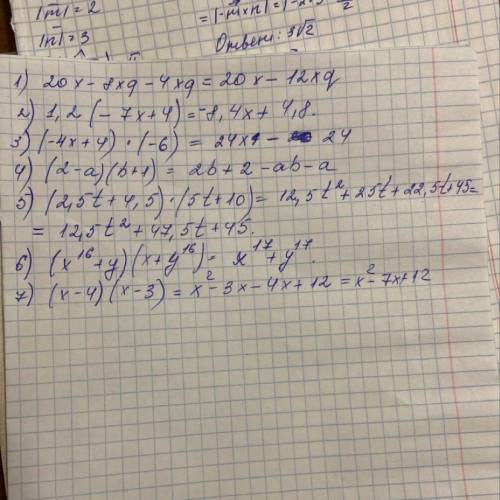 |m̅| = 2
|n̅| = 3
Ответ: 3√2
1) 20x - 8xq - 4xq = 20x - 12xq
2) 1,2 (-7x+4) = -8,4x + 4,8.
3) (-4x+4) · (-6) = 24x - 24
4) (2-a)(b+1) = 2b + 2 - ab - a
5) (2,5t + 4,5) · (5t+10) = 12,5t² + 25t + 22,5t + 45 =
= 12,5t² + 47,5t + 45.
6) (x¹⁶+y)(x+y¹⁶) = x¹⁷ + y¹⁷.
7) (x-4)(x-3) = x² - 3x - 4x + 12 = x² - 7x + 12